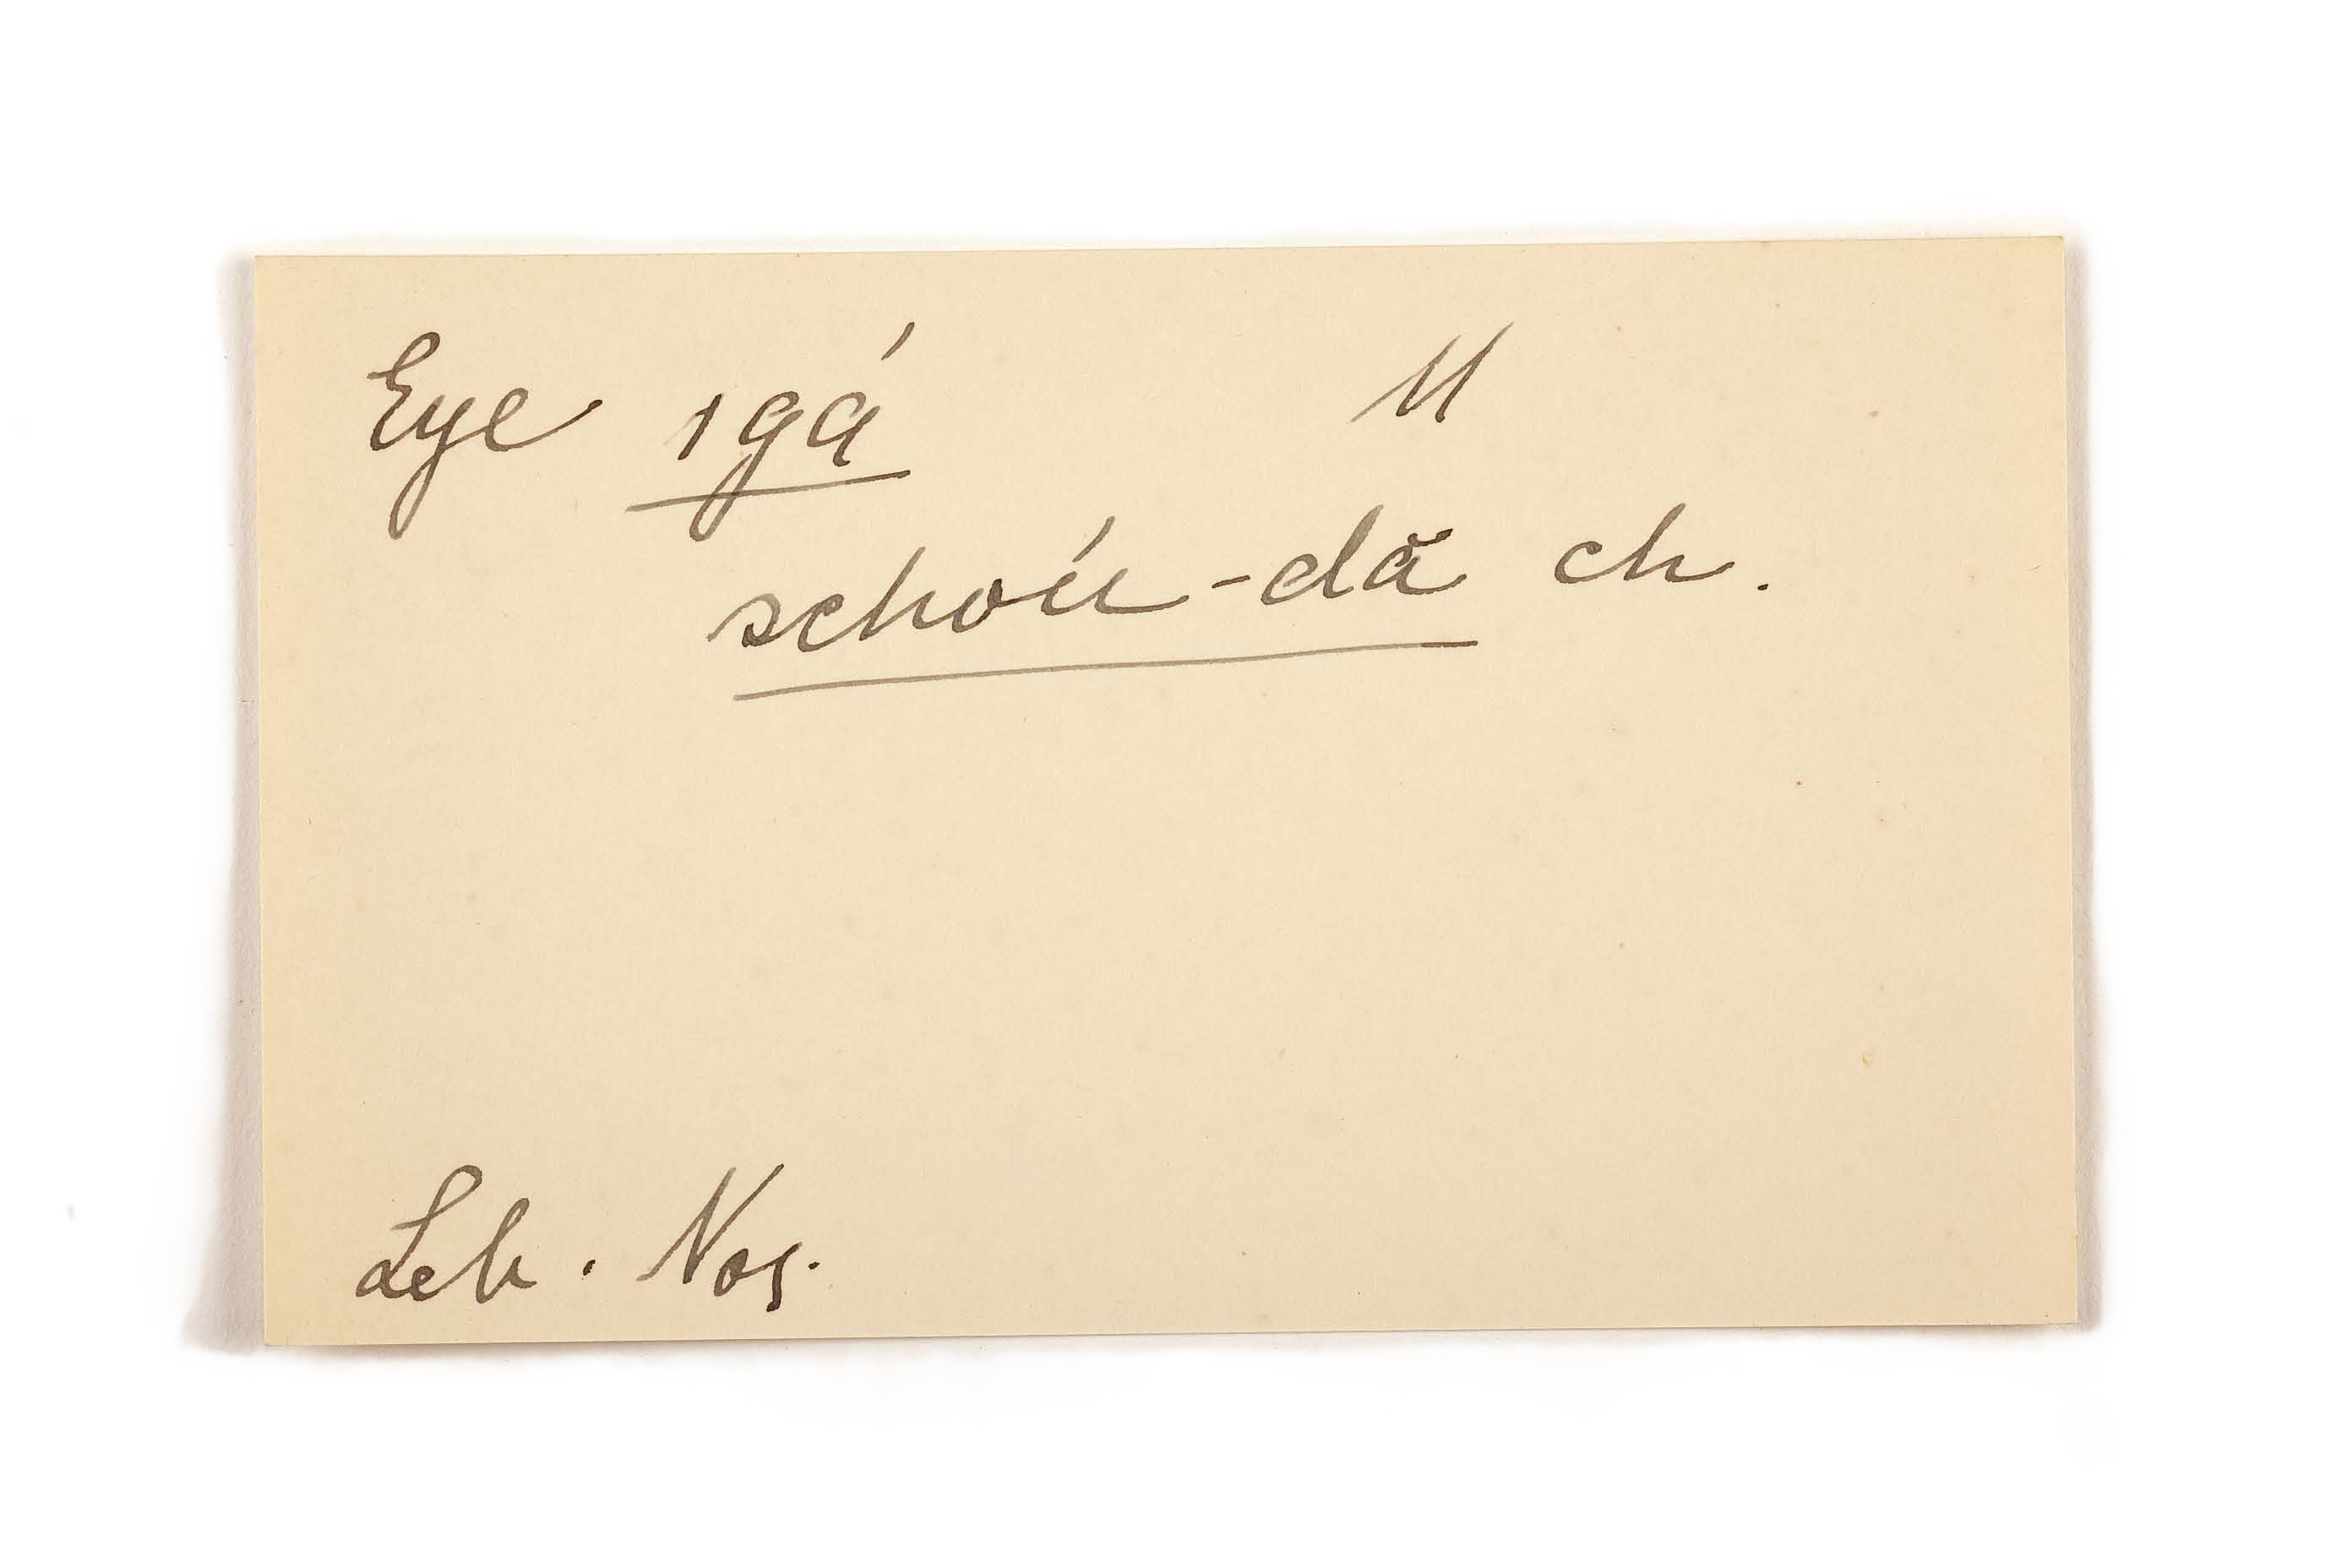 Eye ıgá M
schoú-dă ch.
Leb. Nos.